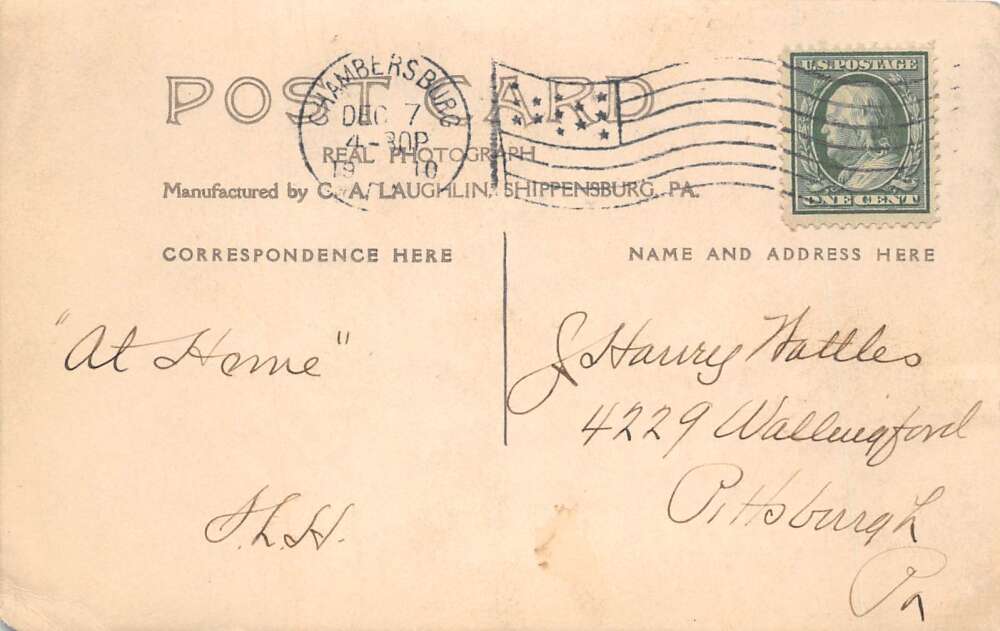 POST CARD
CHAMBERSBURG
DEC 7
4-30P
1910
U.S. POSTAGE
ONE CENT
REAL PHOTOGRAPH
Manufactured by C. A. LAUGHLIN, SHIPPENSBURG, PA.
CORRESPONDENCE HERE
NAME AND ADDRESS HERE
"At Home"
J Harry Wattles
4229 Wallingford
Pittsburgh
Pa